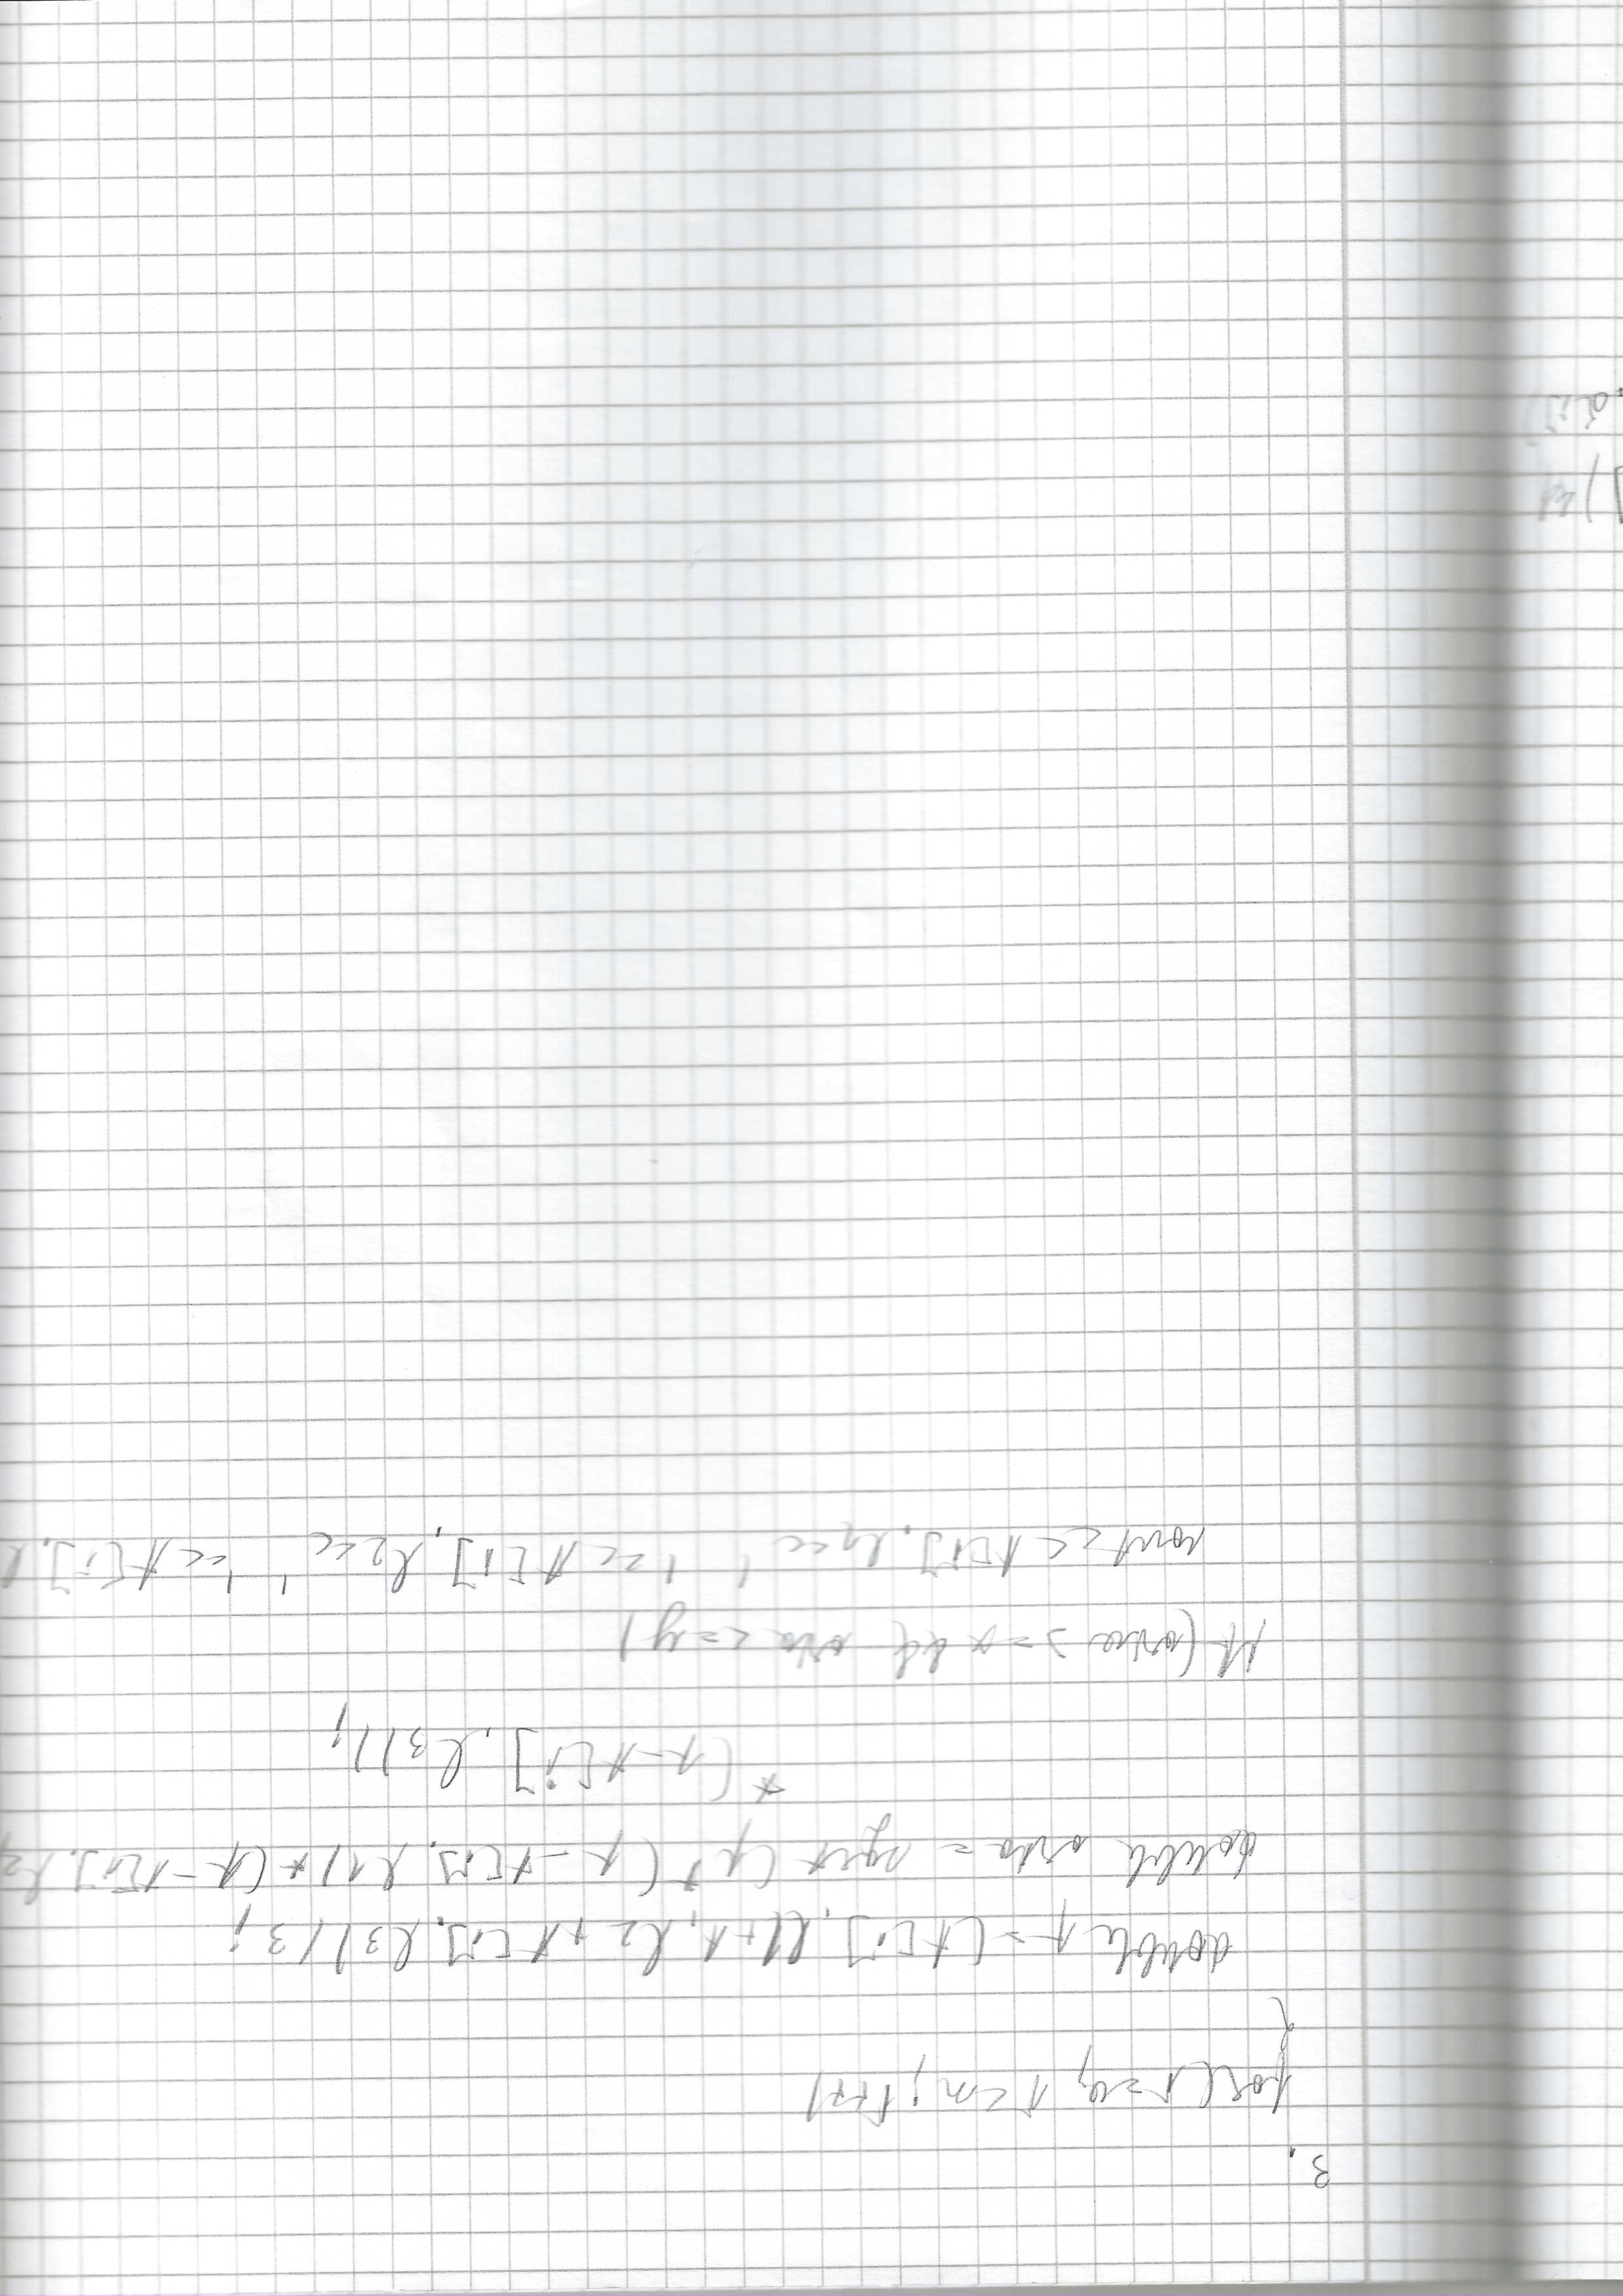 3.
for(i=0; i<n; i++)
{
double p=(t[i].l1+t.l2+t[i].l3)/3;
double aria = sqrt(p*(p-t[i].l1)*(p-t[i].l2)
*(p-t[i].l3));
if(aria >=x && aria <=y)
cout<<t[i].l1<<' '<<t[i].l2<<' '<<t[i].l